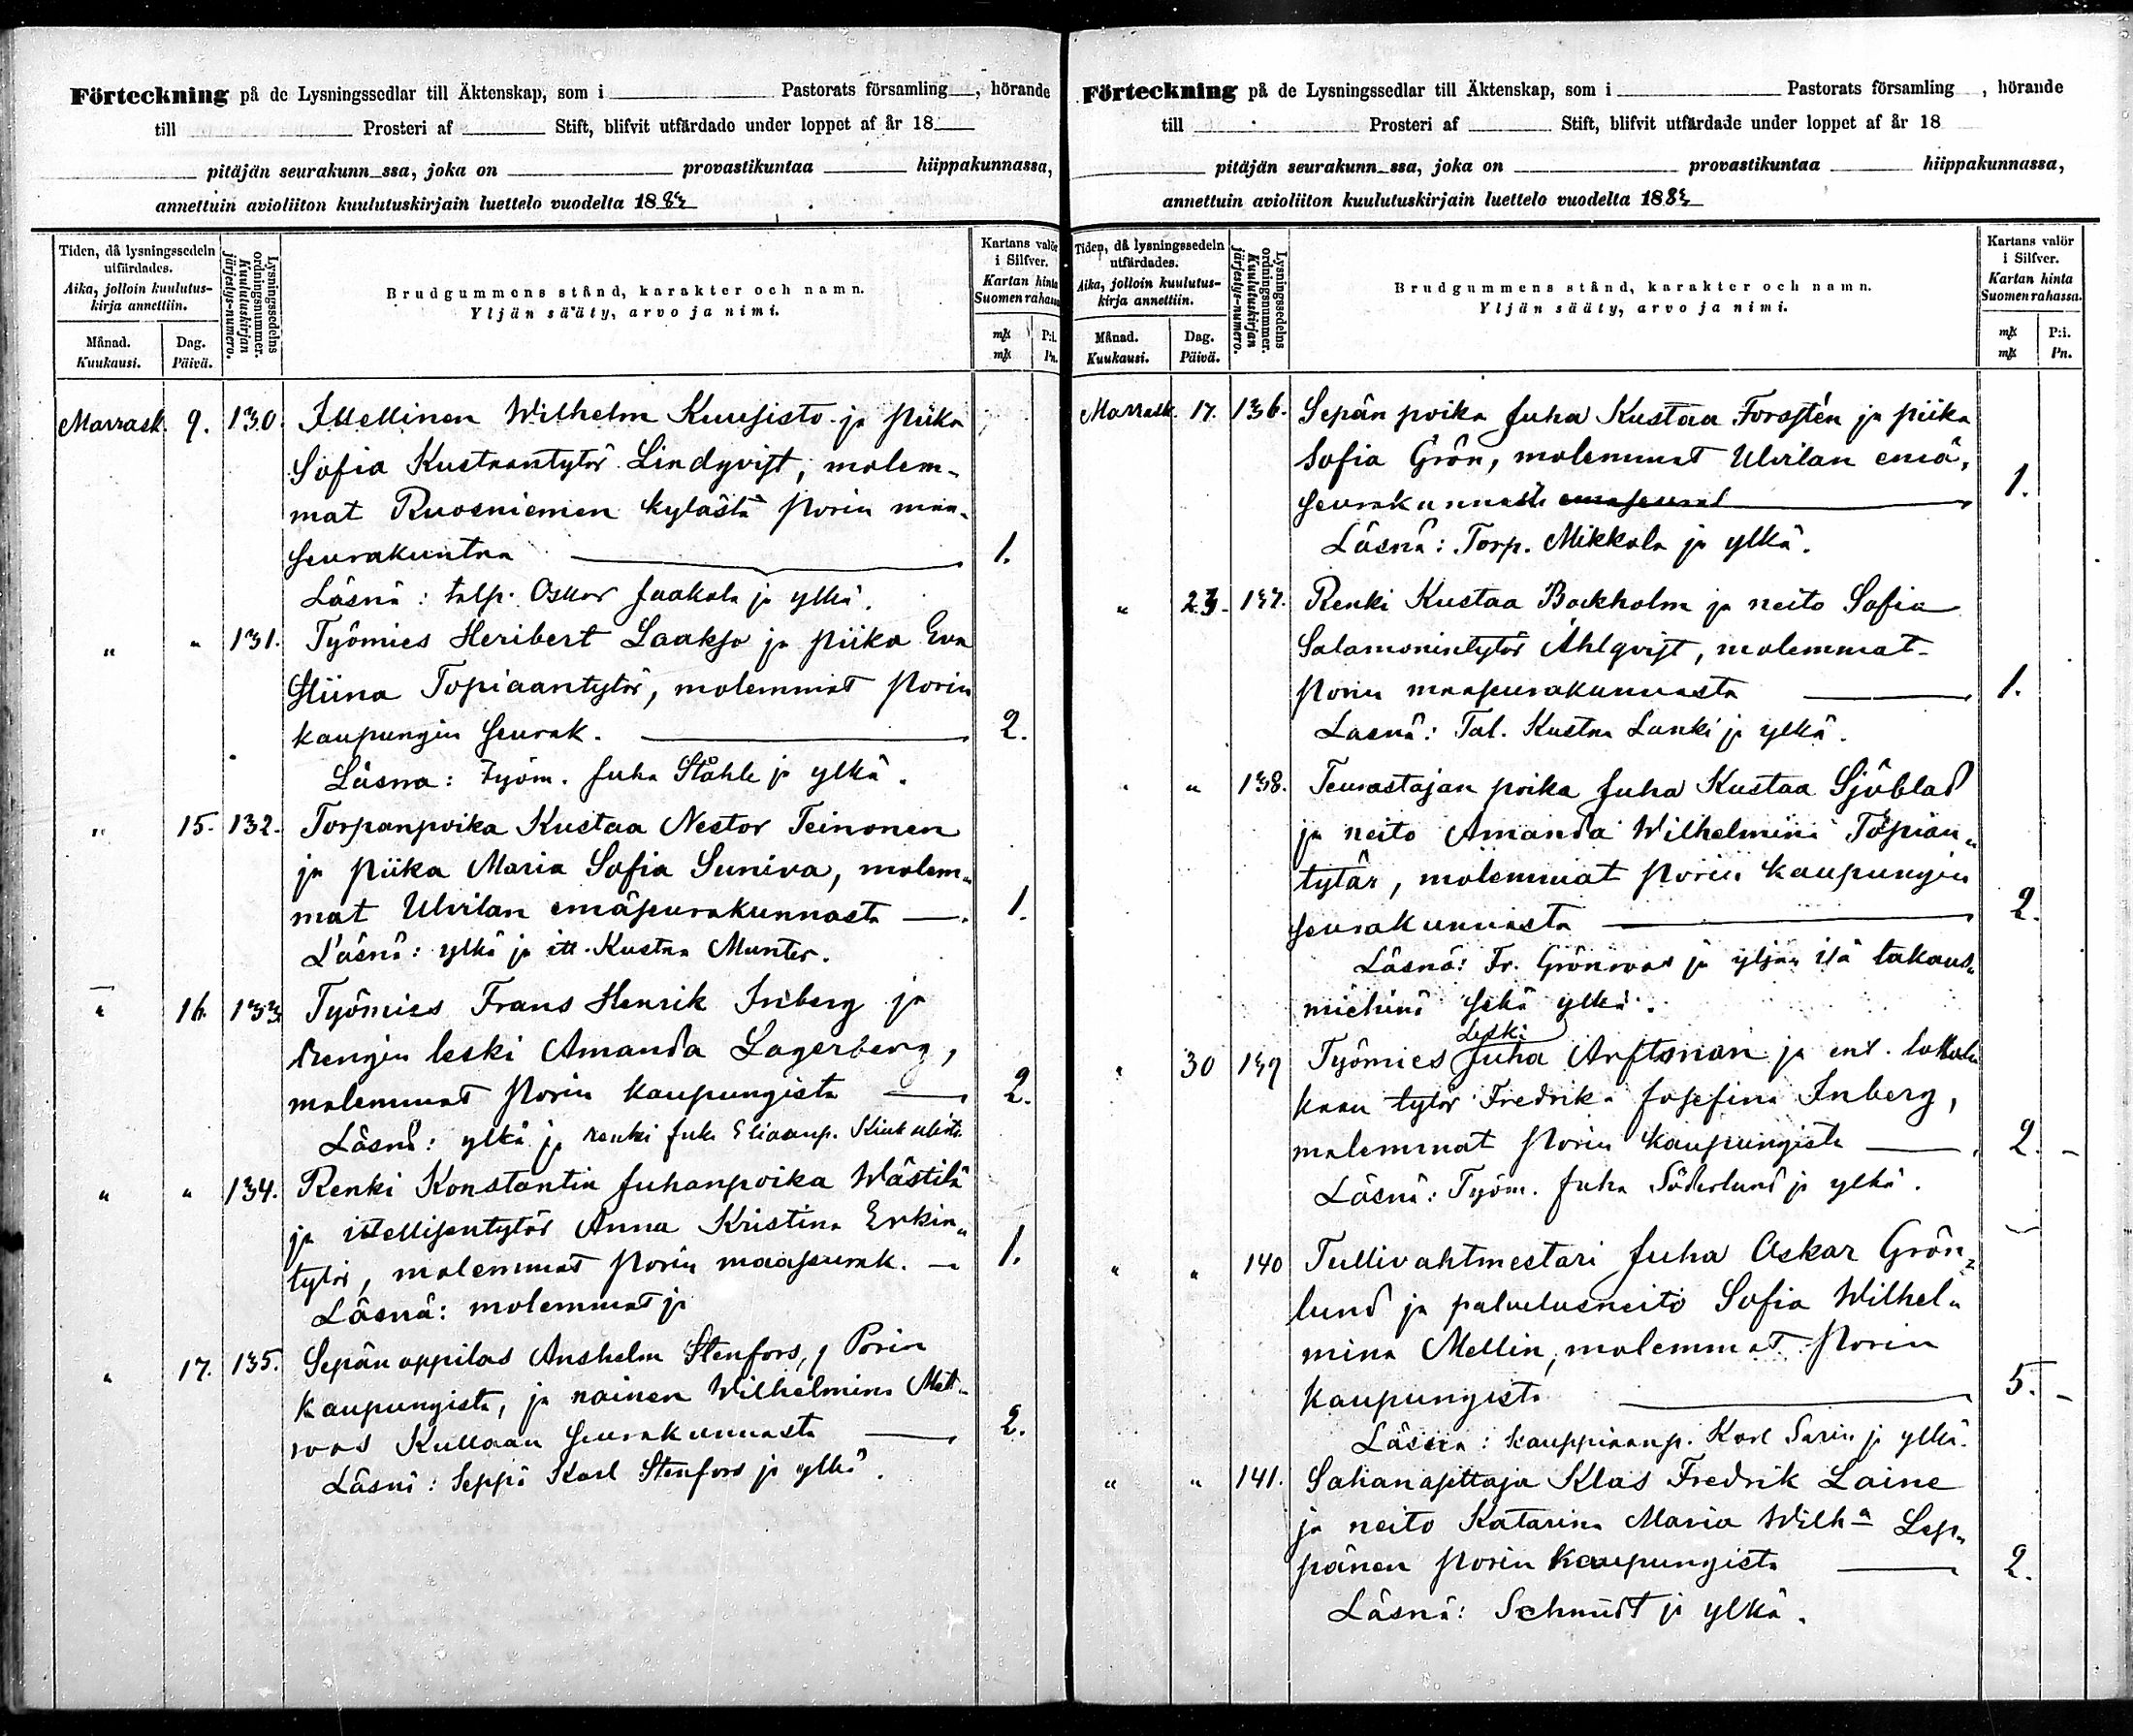 Förteckning på de Lysningssedlar till Äktenskap, som i Pastorats församling , hörande
till Prosteri af Stift, blifvit utfärdade under loppet af år 18
pitäjän seurakunn ssa, joka on provastikuntaa hiippakunnassa,
annettuin avioliiton kuulutuskirjain luettelo vuodelta 1883
Tiden, då lysningssedeln utfärdades.
Aika, jolloin kuulutus-kirja annettiin.
Månad. Kuukausi.
Dag. Päivä.
Lysningssedelns ordningsnummer.
Kuulutuskirjan järjestys-numero.
Brudgummens stånd, karakter och namn.
Yljän sääty, arvo ja nimi.
Kartans valör i Silfver.
Kartan hinta Suomen rahassa.
mk P:i.
mk Pn.
Marrask. 9. 130. Itsellinen Wilhelm Kuusisto ja piika
Sofia Kustaantytär Lindqvist, molem-
mat Ruosniemen kylästä Porin maa-
seurakuntaa 1.
Läsnä: talp. Oskar Jaakola ja ylkä.
" " 131. Työmies Heribert Laakso ja piika Eva
Stiina Topiaantytär, molemmat Porin
kaupungin seurak. 2.
Läsna: Työm. Juha Ståhle ja ylkä.
" 15. 132. Torpanpoika Kustaa Nestor Teinonen
ja piika Maria Sofia Suniva, molem-
mat Ulvilan emäseurakunnasta 1.
Läsnä: ylkä ja itt. Kustaa Munter.
" 16. 133 Työmies Frans Henrik Inberg ja
rengin leski Amanda Lagerberg,
molemmat Porin kaupungista 2.
Läsnä: ylkä ja renki Juha Eliaanp.
" " 134. Renki Konstantin Juhanpoika Wästilä
ja itsellisentytär Anna Kristina Erkin-
tytär, molemmat Porin maaseurak. 1.
Läsnä: molemmat ja
" 17. 135. Sepän oppilas Anshelm Stenfors, Porin
kaupungista, ja nainen Wilhelmina Matt-
roos Kullaan seurakunnasta 2.
Läsnä: Seppä Karl Stenfors ja ylkä.
Förteckning på de Lysningssedlar till Äktenskap, som i Pastorats församling , hörande
till Prosteri af Stift, blifvit utfärdade under loppet af år 18
pitäjän seurakunn ssa, joka on provastikuntaa hiippakunnassa,
annettuin avioliiton kuulutuskirjain luettelo vuodelta 1883
Tiden, då lysningssedeln utfärdades.
Aika, jolloin kuulutus-kirja annettiin.
Månad. Kuukausi.
Dag. Päivä.
Lysningssedelns ordningsnummer.
Kuulutuskirjan järjestys-numero.
Brudgummens stånd, karakter och namn.
Yljän sääty, arvo ja nimi.
Kartans valör i Silfver.
Kartan hinta Suomen rahassa.
mk P:i.
mk Pn.
Marrask. 17. 136. Sepän poika Juha Kustaa Forstén ja piika
Sofia Grön, molemmat Ulvilan emä-
seurakunnasta 1.
Läsnä: Torp. Mikkola ja ylkä.
" 23. 137. Renki Kustaa Backholm ja neito Sofia
Salamonintytär Ahlqvist, molemmat
Porin maaseurakunnasta 1.
Läsnä: Tal. Kustaa Lanki ja ylkä.
" " 138. Teurastajan poika Juha Kustaa Sjöblad
ja neito Amanda Wilhelmina Topian-
tytär, molemmat Porin kaupungin
seurakunnasta 2.
Läsnä: Fr. Grönroos ja yljän isä takaus-
miehinä sekä ylkä.
" 30 139 Työmies Leski Juha Anftsnan ja ent.
tytär Fredrika Josefina Inberg,
molemmat Porin kaupungista 2. -
Läsnä: Työm. Juha Söderlund ja ylkä.
" " 140 Tullivahtmestari Juha Oskar Grön-
lund ja palvelusneito Sofia Wilhel-
mina Mellin, molemmat Porin
kaupungista 5. -
Läsnä: kauppiaanp. Karl Sarin ja ylkä.
" " 141. Sahanasettaja Klas Fredrik Laine
ja neito Katarina Maria Wilh:a Lep-
pänen Porin kaupungista 2.
Läsnä: Schmidt ja ylkä.